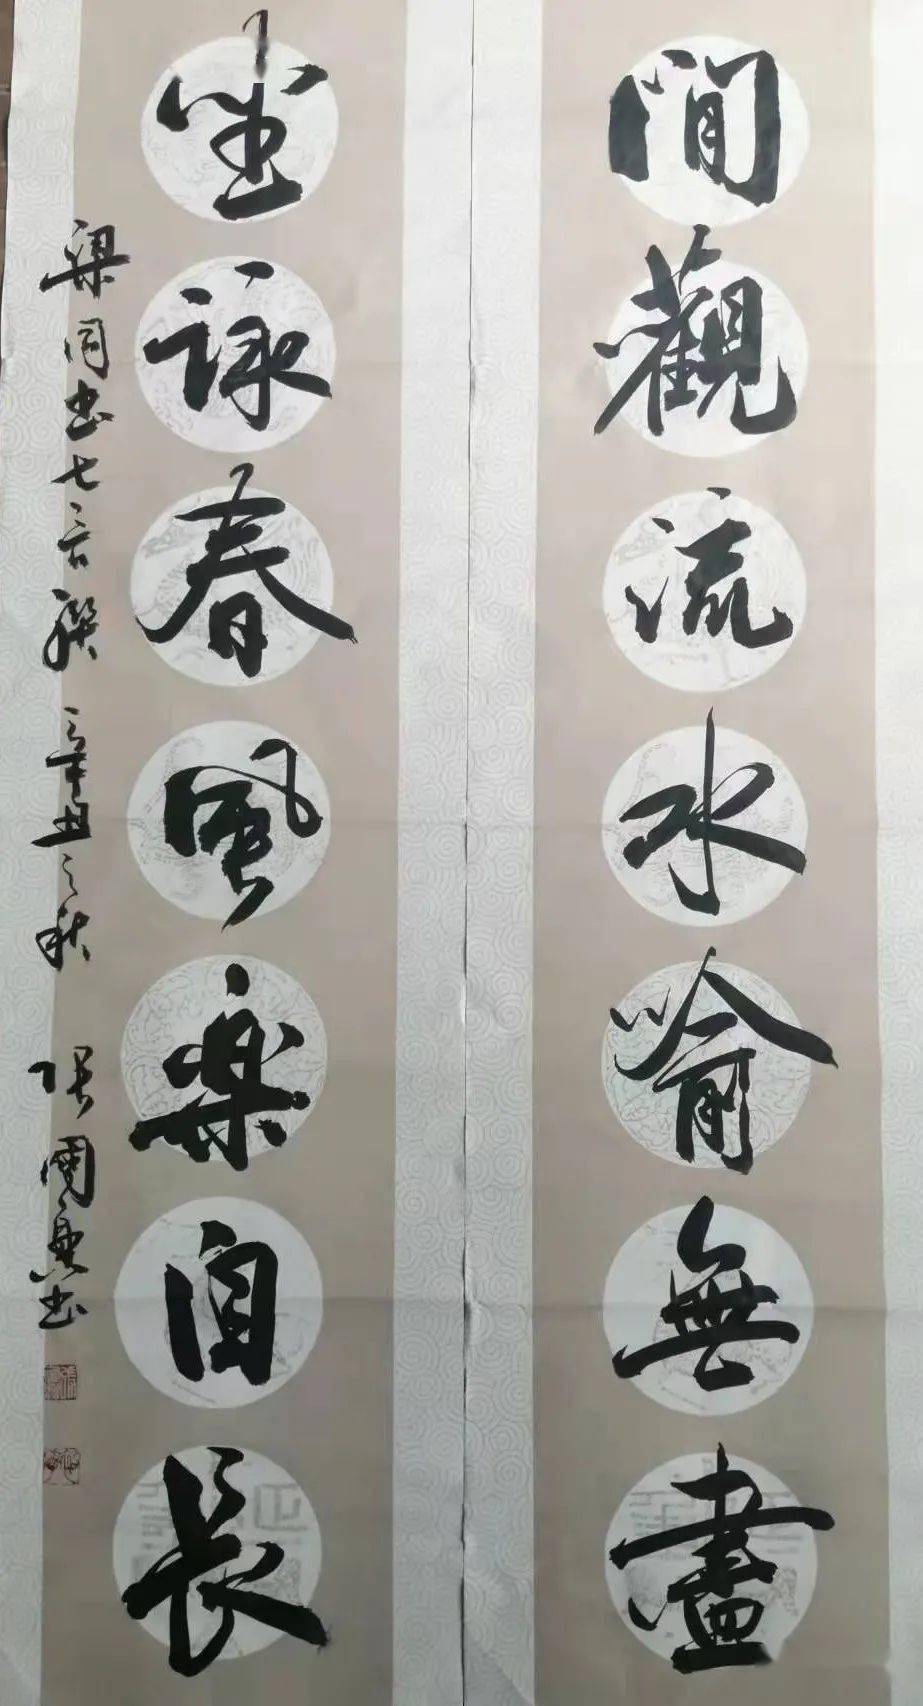 閒觀流水喻無盡
坐詠春風樂自長
梁同書七言聯 辛丑之秋 張國興書